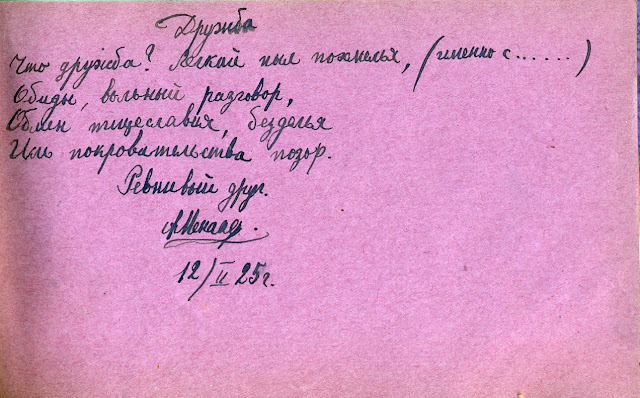 Дружба
Что дружба? Легкий пыл похмелья, (именно с......)
Обиды, вольный разговор,
Обмен тщеславия, безделья
Иль покровительства позор.
Ревнивый друг.
12/II 25г.